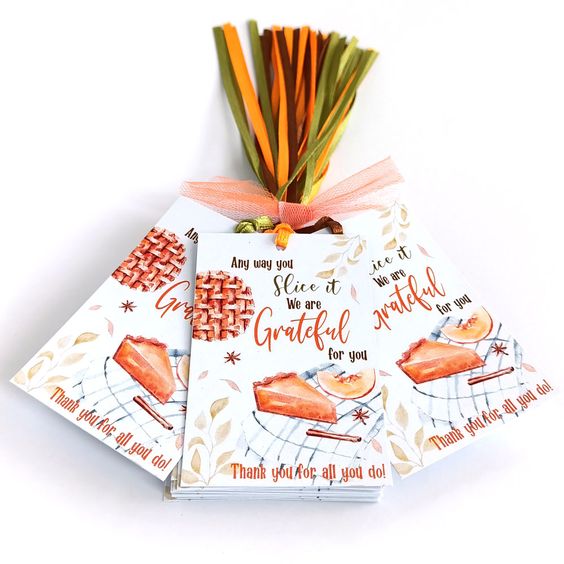 Any way you
Slice it
We are
Grateful
for you
Thank you for all you do!
An
Gra
Thank you for all you do!
lice it
We are
rateful
for you
Thank you for all you do!